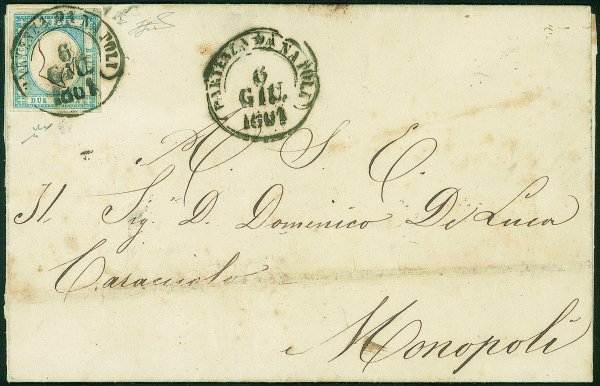 PARTENZA DA NAPOLI
6
GIU.
1861
DUE
PARTENZA DA NAPOLI
6
GIU.
1861
A. S. E.
Il Sig. D. Domenico De Luca
Caracciolo
Monopoli